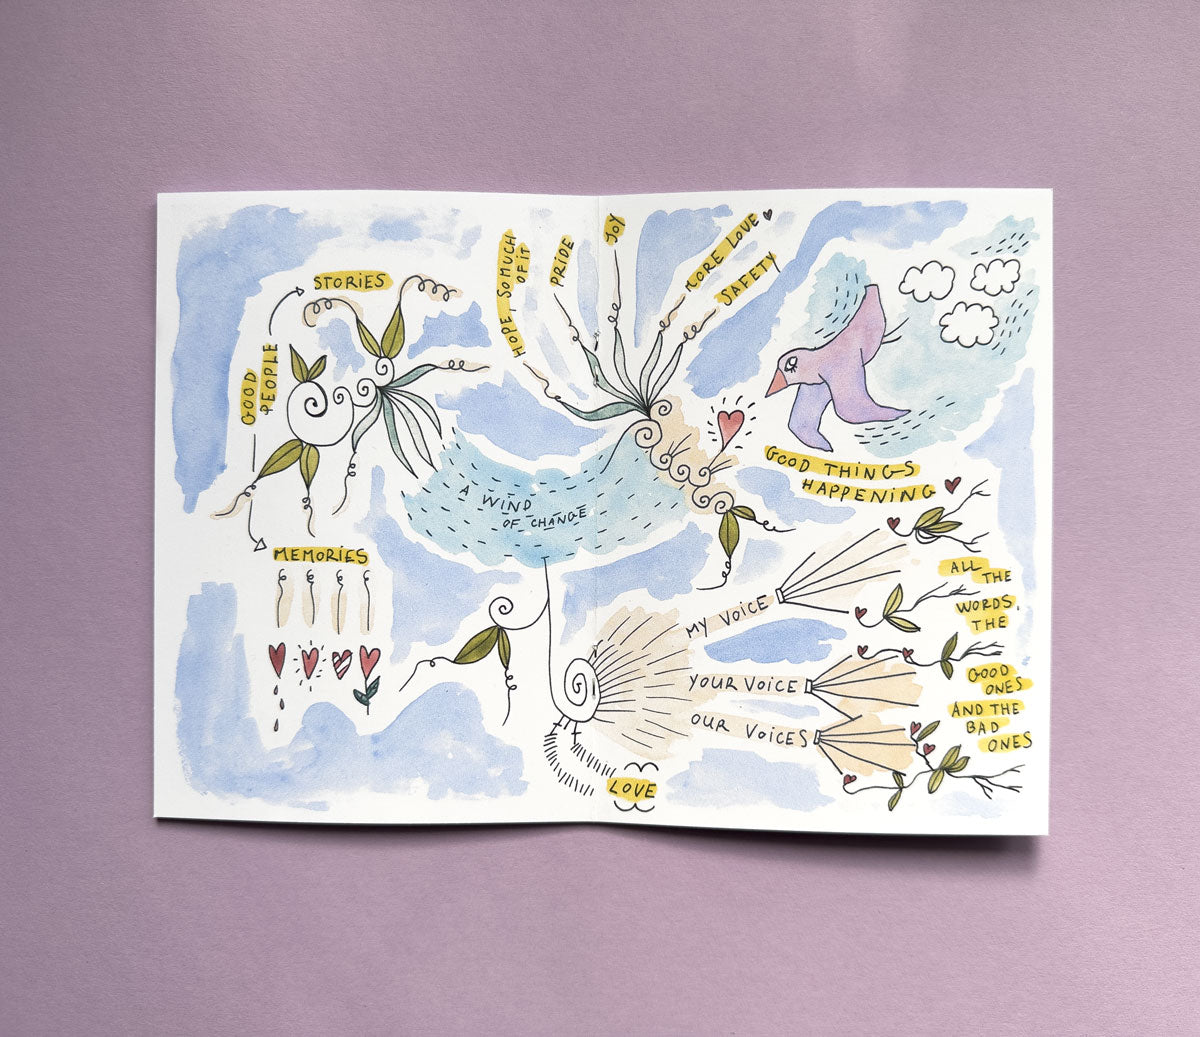 STORIES
GOOD
PEOPLE
MEMORIES
A WIND
OF CHANGE
HOPE, SO MUCH
OF IT
PRIDE
JOY
MORE LOVE
SAFETY
GOOD THINGS
HAPPENING
MY VOICE
YOUR VOICE
OUR VOICES
LOVE
ALL
THE
WORDS,
THE
GOOD
ONES
AND THE
BAD
ONES